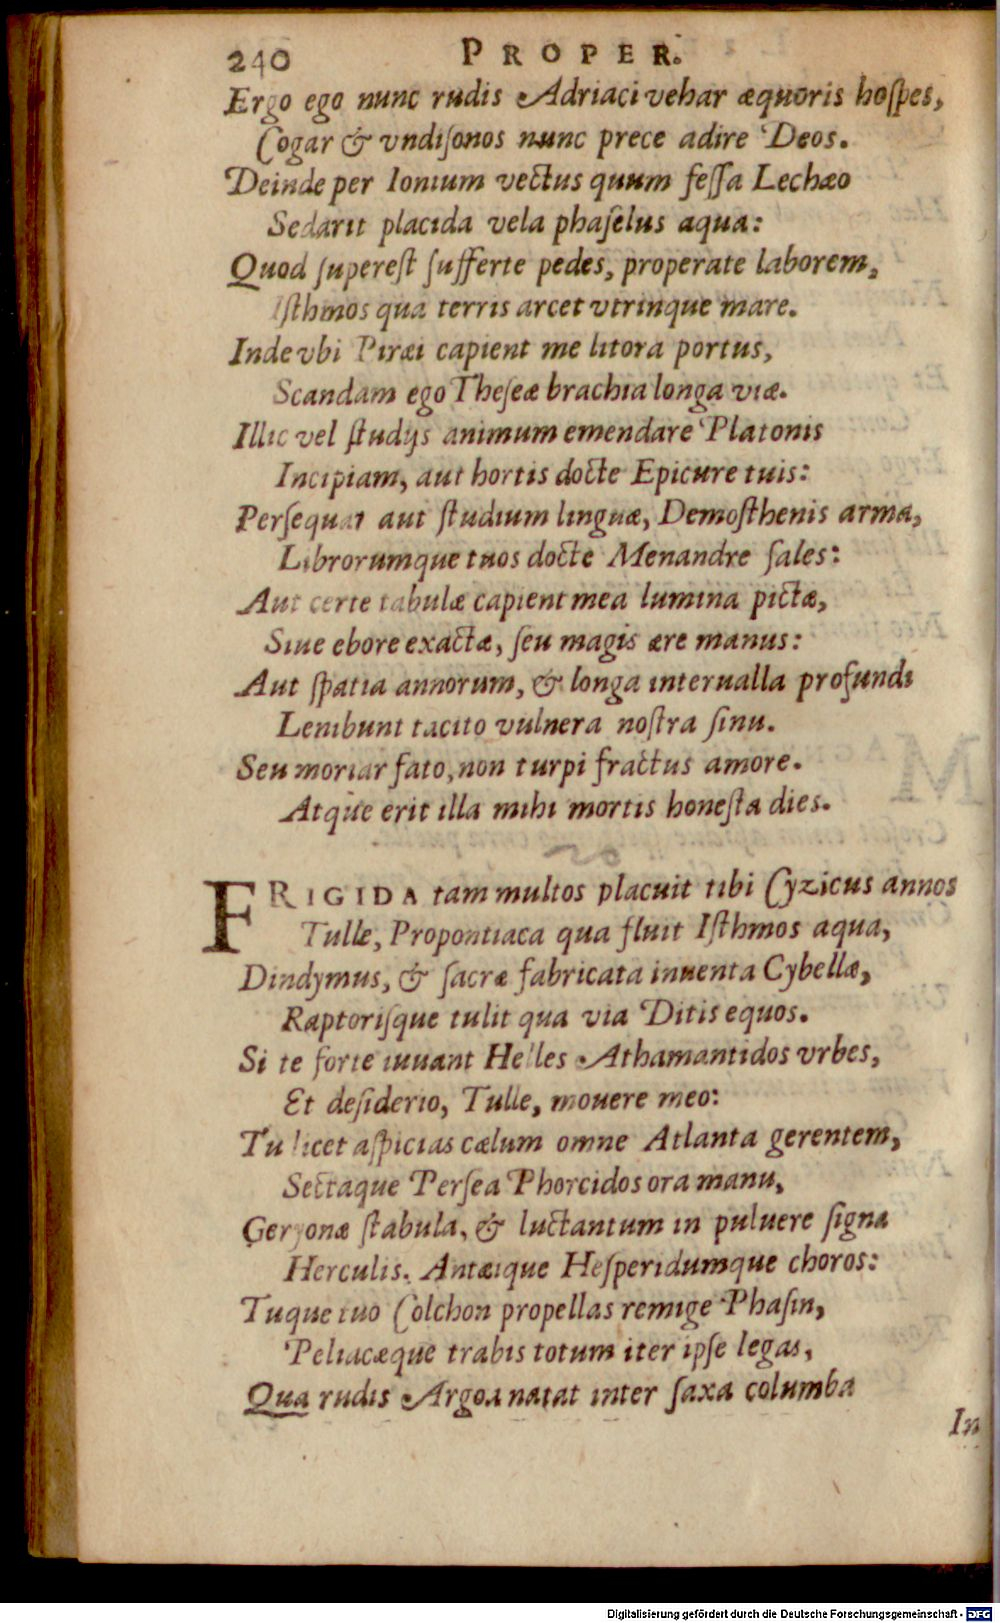 240 PROPER.
Ergo ego nunc rudis Adriaci vehar æquoris hoſpes,
Cogar & vndiſonos nunc prece adire Deos.
Deinde per Ionium vectus quum feſſa Lechæo
Sedarit placida vela phaſelus aqua:
Quod ſupereſt ſufferte pedes, properate laborem,
Iſthmos qua terris arcet vtrinque mare.
Inde vbi Piræi capient me litora portus,
Scandam ego Theſeæ brachia longa viæ.
Illic vel ſtudijs animum emendare Platonis
Incipiam, aut hortis docte Epicure tuis:
Perſequar aut ſtudium linguæ, Demoſthenis arma,
Librorumque tuos docte Menandre ſales:
Aut certe tabulæ capient mea lumina pictæ,
Siue ebore exactæ, ſeu magis ære manus:
Aut ſpatia annorum, & longa interualla profundi
Lenibunt tacito vulnera noſtra ſinu.
Seu moriar fato, non turpi fractus amore.
Atque erit illa mihi mortis honeſta dies.
FRIGIDA tam multos placuit tibi Cyzicus annos
Tulle, Propontiaca qua fluit Iſthmos aqua,
Dindymus, & ſacræ fabricata inuenta Cybellæ,
Raptoriſque tulit qua via Ditis equos.
Si te forte iuuant Helles Athamantidos vrbes,
Et deſiderio, Tulle, mouere meo:
Tu licet aſpicias cælum omne Atlanta gerentem,
Sectaque Perſea Phorcidos ora manu,
Geryonæ ſtabula, & luctantum in puluere ſigna
Herculis. Antæique Heſperidumque choros:
Tuque tuo Colchon propellas remige Phaſin,
Peliacæque trabis totum iter ipſe legas,
Qua rudis Argoa natat inter ſaxa columba
In
Digitalisierung gefördert durch die Deutsche Forschungsgemeinschaft - DFG